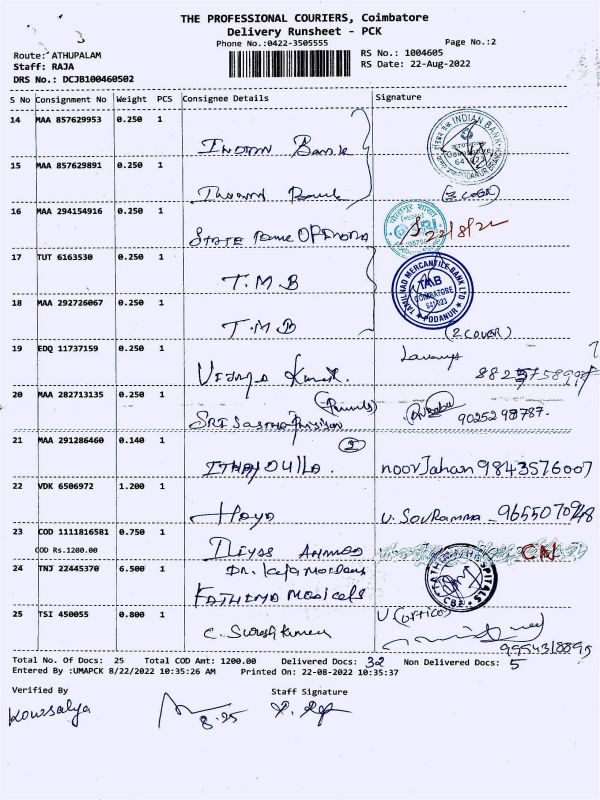 THE PROFESSIONAL COURIERS, Coimbatore
Delivery Runsheet - PCK
Phone No.:0422-3505555 Page No.:2
Route: ATHUPALAM RS No.: 1004605
Staff: RAJA RS Date: 22-Aug-2022
DRS No.: DCJB100460502
S No Consignment No Weight PCS Consignee Details Signature
14 MAA 857629953 0.250 1
INDIAN Bank
INDIAN BANK
PODANUR
15 MAA 857629891 0.250 1
Indian Bank (2 COVER)
16 MAA 294154916 0.250 1
STATE Bank OF INDIA 22/8/22
17 TUT 6163530 0.250 1
T.M.B
TAMILNAD MERCANTILE BANK LTD.
TMB
COIMBATORE
641 023
PODANUR
18 MAA 292726067 0.250 1
T.M.B (2 COVER)
19 EDQ 11737159 0.250 1
Vijaya Kumar. Lavanya
20 MAA 282713135 0.250 1
SRI Sastha 9025298787-
21 MAA 291286460 0.140 1 2
ITHAYDULLA. noorJahan 9843576007
22 VDK 6506972 1.200 1
Haya U. SovRamma - 9655070948
23 COD 1111816581 0.750 1
COD Rs.1200.00
ILIYAS AHMED CN
24 TNJ 22445370 6.500 1
Dr.
FATHIMA HOSPITALS
CBE
25 TSI 450055 0.800 1
C. Suresh Kumar (office)
9994318895
Total No. Of Docs: 25 Total COD Amt: 1200.00 Delivered Docs: 32 Non Delivered Docs: 5
Entered By :UMAPCK 8/22/2022 10:35:26 AM Printed On: 22-08-2022 10:35:37
Verified By Staff Signature
Kowsalya 8.25